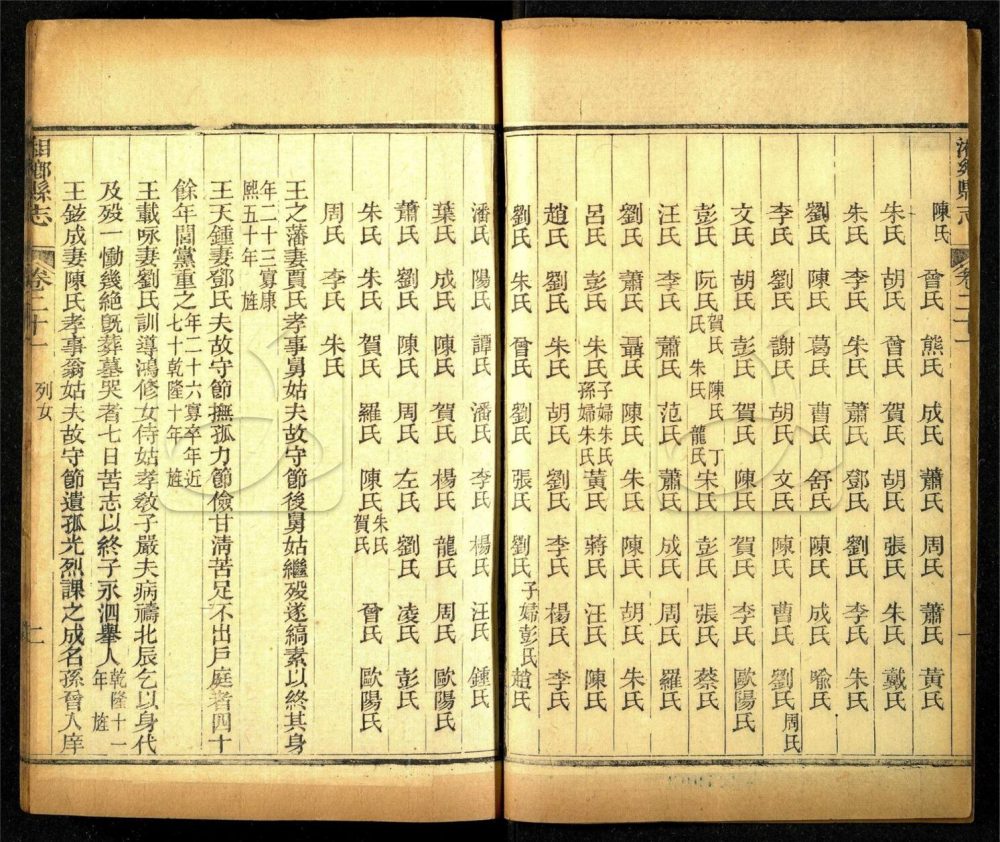 湘鄉縣志
卷二十一
一
陳氏
曾氏 熊氏 成氏 蕭氏 周氏 蕭氏 黃氏
朱氏 胡氏 曾氏 賀氏 胡氏 張氏 朱氏 戴氏
朱氏 李氏 朱氏 蕭氏 鄧氏 劉氏 李氏 朱氏
劉氏 陳氏 葛氏 曹氏 舒氏 陳氏 成氏 喩氏
李氏 劉氏 謝氏 胡氏 文氏 陳氏 曹氏 劉氏 周氏
文氏 胡氏 彭氏 賀氏 陳氏 賀氏 李氏 歐陽氏
彭氏 阮氏 賀氏 朱氏 陳氏 龍氏 丁氏 宋氏 彭氏 張氏 蔡氏
汪氏 劉氏 蕭氏 范氏 蕭氏 成氏 周氏 羅氏
劉氏 蕭氏 聶氏 陳氏 朱氏 陳氏 胡氏 朱氏
呂氏 彭氏 朱氏 子婦朱氏 孫婦朱氏 黃氏 蔣氏 汪氏 陳氏
趙氏 劉氏 朱氏 胡氏 劉氏 李氏 楊氏 李氏
劉氏 朱氏 曾氏 劉氏 張氏 劉氏 子婦彭氏 趙氏
潘氏 陽氏 譚氏 潘氏 李氏 楊氏 汪氏 鍾氏
葉氏 成氏 陳氏 賀氏 楊氏 龍氏 周氏 歐陽氏
蕭氏 劉氏 陳氏 周氏 左氏 劉氏 凌氏 彭氏
朱氏 朱氏 賀氏 羅氏 陳氏 朱氏 賀氏 曾氏 歐陽氏
周氏 李氏 朱氏
王之藩妻賈氏孝事舅姑夫故守節後舅姑繼殁遂縞素以終其身
年二十三寡康
熙五十年 旌
王天鍾妻鄧氏夫故守節撫孤力節儉甘淸苦足不出戶庭者四十
餘年閭黨重之年二十六寡卒年近七十乾隆十年 旌
王載咏妻劉氏訓導鴻修女侍姑孝敎子嚴夫病禱北辰乞以身代
及殁一慟幾絕旣葬墓哭者七日苦志以終子永泗擧人乾隆十一年 旌
王鉉成妻陳氏孝事翁姑夫故守節遺孤光烈課之成名孫曾入庠
湘鄉縣志
卷二十一 列女
二